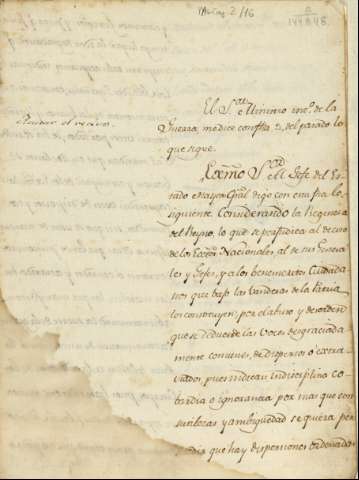 2/16
El S.r Ministro int.o de la
Guerra, me dice con fha 2, del pasado lo
que sigue.
Exmo S.or el Gefe del Es-
tado Mayor Gral dijo con esta fha lo
siguiente. Considerando la Regencia
del Reyno, lo que se perjudica al decoro
de los Nacionales, al de sus Genera-
les y Gefes, y a los benemeritos Ciudada
nos que bajo las vanderas de la Patria
los constituyen, por el abuso y desorden
que se deduce de las voces desgraciada
mente comunes, de dispersos ó extra
viados pues indican indisciplina co-
bardia ó ignorancia por mas que con
y ambiguedad se quiera per
que hay dispersiones ordenadas